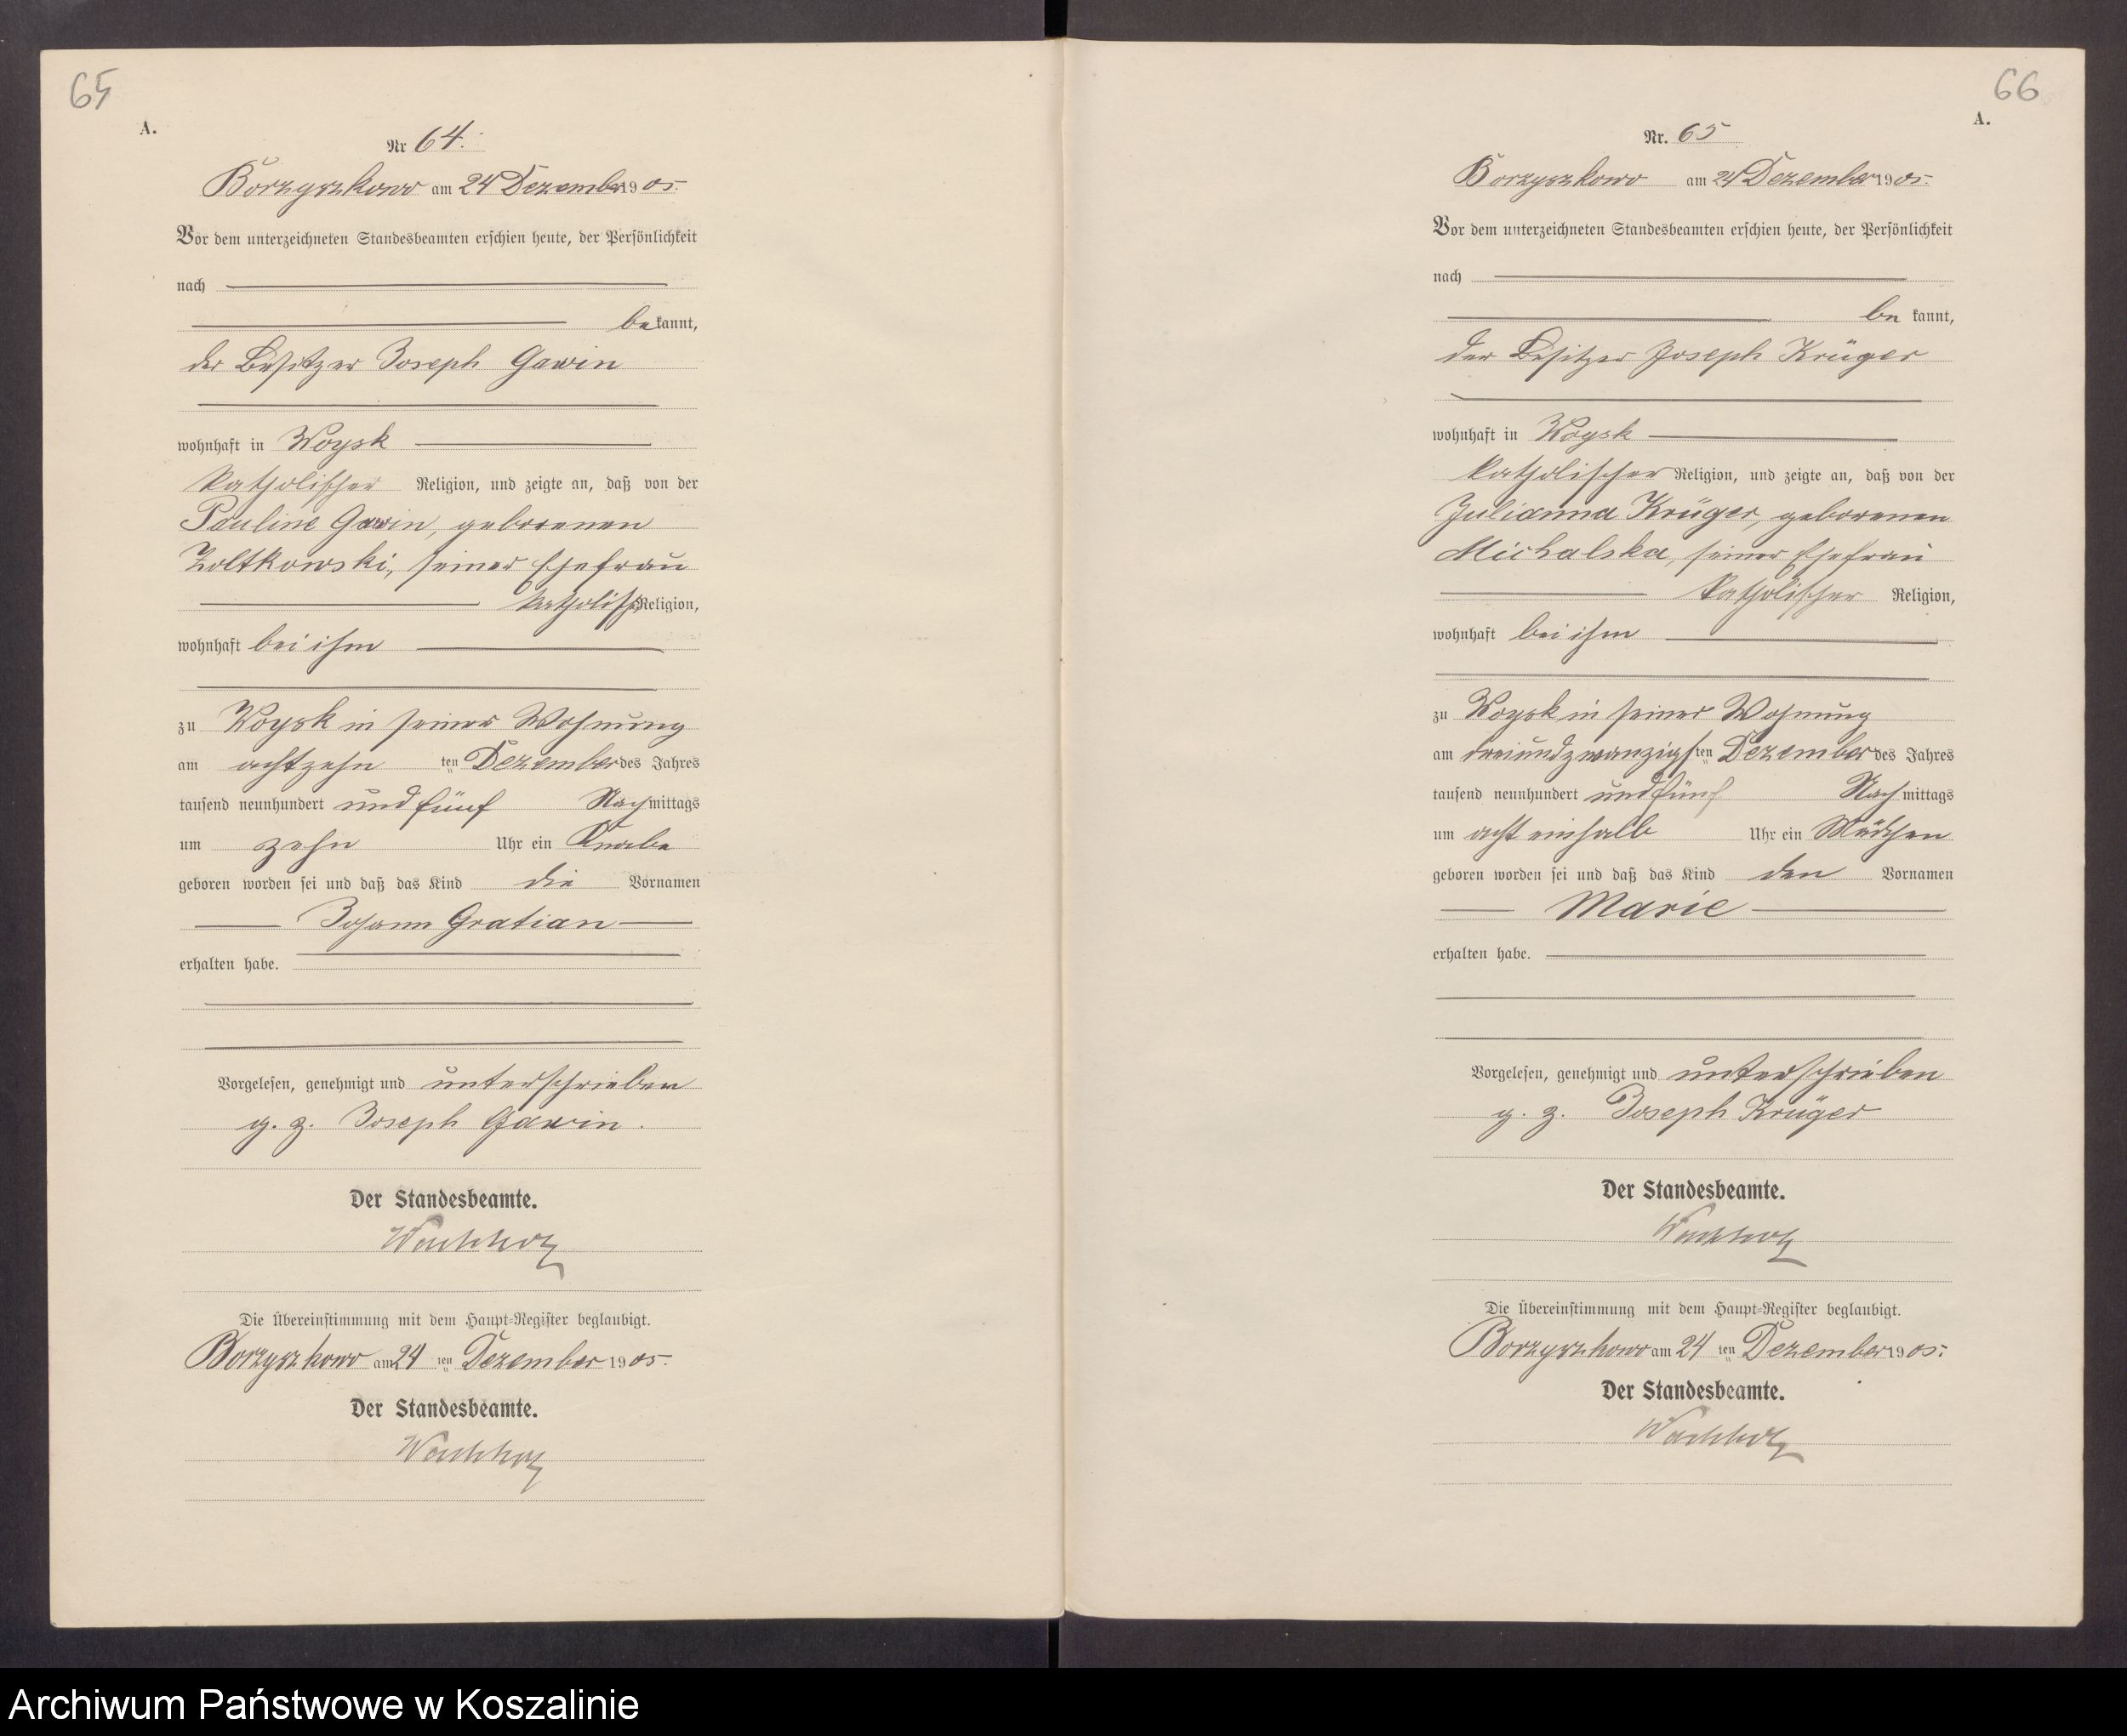 65
A.
Nr 64.
Borzyszkowo am 24 Dezember 1905.
Vor dem unterzeichneten Standesbeamten erschien heute, der Persönlichkeit
nach
bekannt,
der Besitzer Joseph Gawin
wohnhaft in Woysk
katholischer Religion, und zeigte an, daß von der
Pauline Gawin, geborenen
Zoltkowski, seiner Ehefrau
katholisch Religion,
wohnhaft bei ihm
zu Woysk in seiner Wohnung
am achtzehn ten Dezember des Jahres
tausend neunhundert und fünf Nachmittags
um zehn Uhr ein Knabe
geboren worden sei und daß das Kind die Vornamen
Johann Gratian
erhalten habe.
Vorgelesen, genehmigt und unterschrieben
g. g. Joseph Gawin.
Der Standesbeamte.
Wachholz
Die Übereinstimmung mit dem Haupt-Register beglaubigt.
Borzyszkowo am 24 ten Dezember 1905.
Der Standesbeamte.
Wachholz
66
A.
Nr. 65
Borzyszkowo am 24 Dezember 1905.
Vor dem unterzeichneten Standesbeamten erschien heute, der Persönlichkeit
nach
be kannt,
der Besitzer Joseph Krüger
wohnhaft in Woysk
katholischer Religion, und zeigte an, daß von der
Julianna Krüger, geborenen
Michalska, seiner Ehefrau
katholischer Religion,
wohnhaft bei ihm
zu Woysk in seiner Wohnung
am dreiundzwanzigsten Dezember des Jahres
tausend neunhundert und fünf Nachmittags
um acht einhalb Uhr ein Mädchen
geboren worden sei und daß das Kind den Vornamen
Marie
erhalten habe.
Vorgelesen, genehmigt und unterschrieben
g. g. Joseph Krüger
Der Standesbeamte.
Wachholz
Die Übereinstimmung mit dem Haupt-Register beglaubigt.
Borzyszkowo am 24 ten Dezember 1905.
Der Standesbeamte.
Wachholz
Archiwum Państwowe w Koszalinie